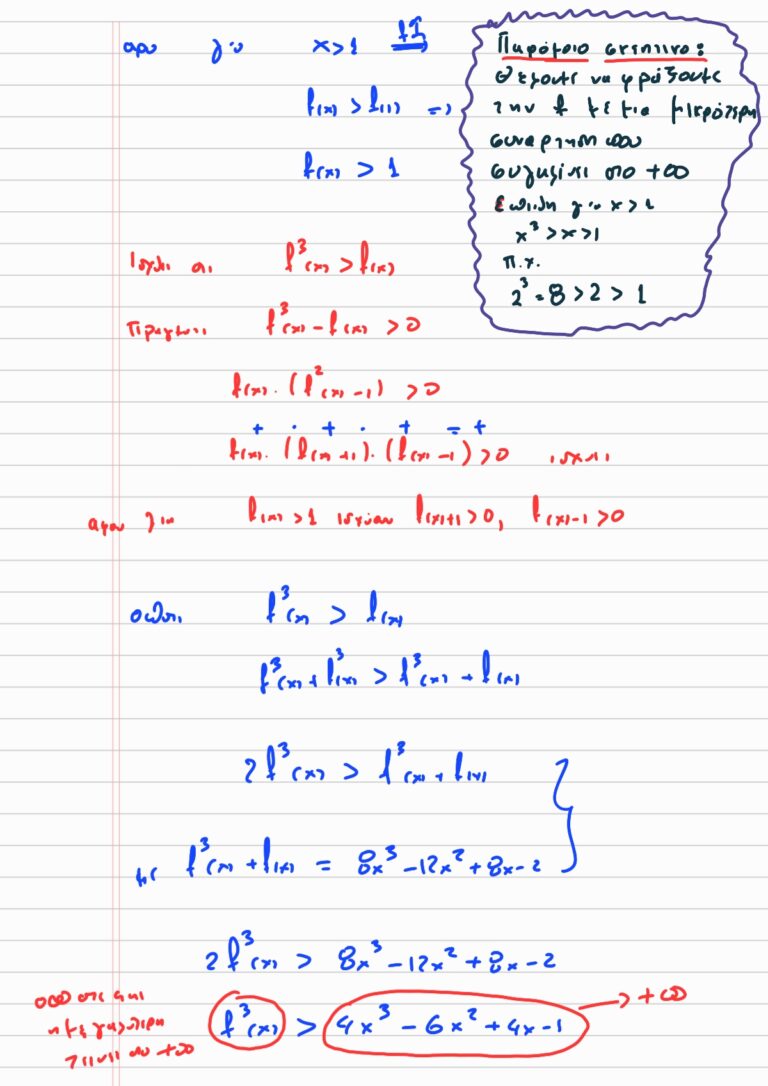 αρα για x>1 f↑⟹
f(x) > f(1) ⟹
f(x) > 1
Παρόμοιο
θέλουμε να φράξουμε
την f με μια μικρότερη
συναρτηση που
συγκλίνει στο +∞
Επειδη για x>1
x³>x>1
π.χ.
2³=8>2>1
Ισχυει οτι f³(x) > f(x)
Πραγματι f³(x) - f(x) > 0
f(x) · (f²(x) - 1) > 0
+ · + · + = +
f(x) · (f(x)+1) · (f(x)-1) > 0 ισχυει
αφου για f(x)>1 ισχυουν f(x)+1>0, f(x)-1>0
οποτε f³(x) > f(x)
f³(x) + f³(x) > f³(x) + f(x)
2f³(x) > f³(x) + f(x)
με f³(x) + f(x) = 8x³ - 12x² + 8x - 2
2f³(x) > 8x³ - 12x² + 8x - 2
οποτε και
η μεγαλυτερη
τεινει στο +∞
f³(x) > 4x³ - 6x² + 4x - 1 → +∞